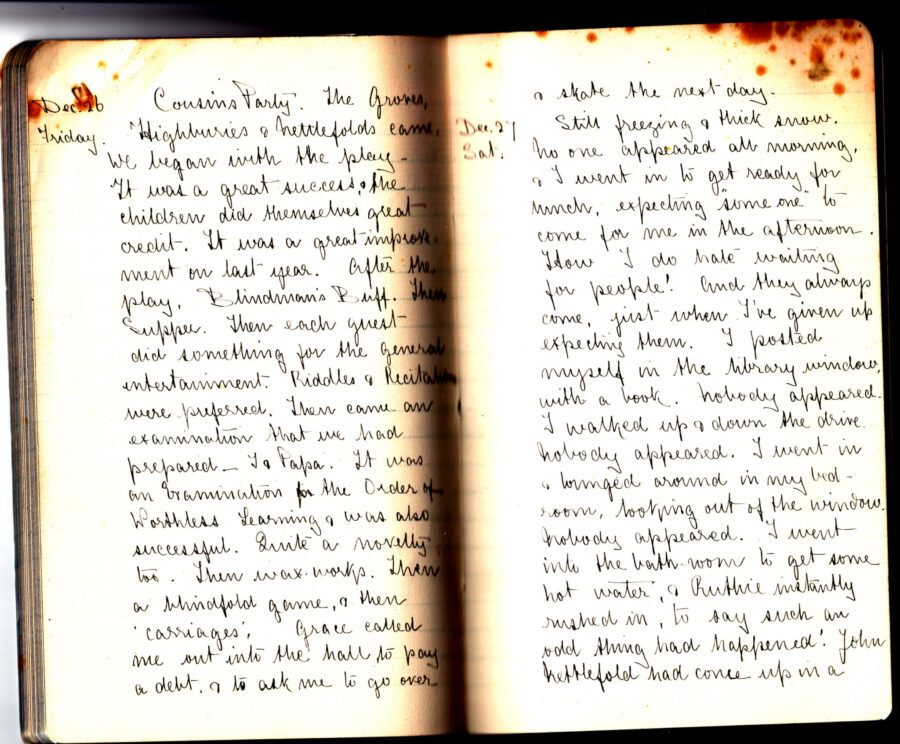 Dec. 26
Friday.
Cousins Party. The Groves,
Highburies & Nettlefolds came.
We began with the play -
It was a great success, & the
children did themselves great
credit. It was a great improve-
ment on last year. After the
play, Blindman's Buff. Then
Supper. Then each guest
did something for the general
entertainment. Riddles & Recitat
were preferred. Then came an
examination that we had
prepared - I & Papa. It was
an Examination for the Order of
Worthless Learning & was also
successful. Quite a novelty,
too. Then wax-works. Then
a blindfold game, & then
'carriages'. Grace called
me out into the hall, to pay
a debt, & to ask me to go over
& skate the next day.
Dec. 27
Sat.
Still freezing & thick snow.
No one appeared all morning,
& I went in to get ready for
lunch, expecting "some one" to
come for me in the afternoon.
How I do hate waiting
for people! And they always
come, just when I've given up
expecting them. I posted
myself in the library window,
with a book. Nobody appeared.
I walked up & down the drive.
Nobody appeared. I went in
& lounged around in my bed-
room, looking out of the window.
Nobody appeared. I went
into the bath-room to get some
hot water, & Ruthie instantly
rushed in, to say such an
odd thing had happened! John
Nettlefold had come up in a